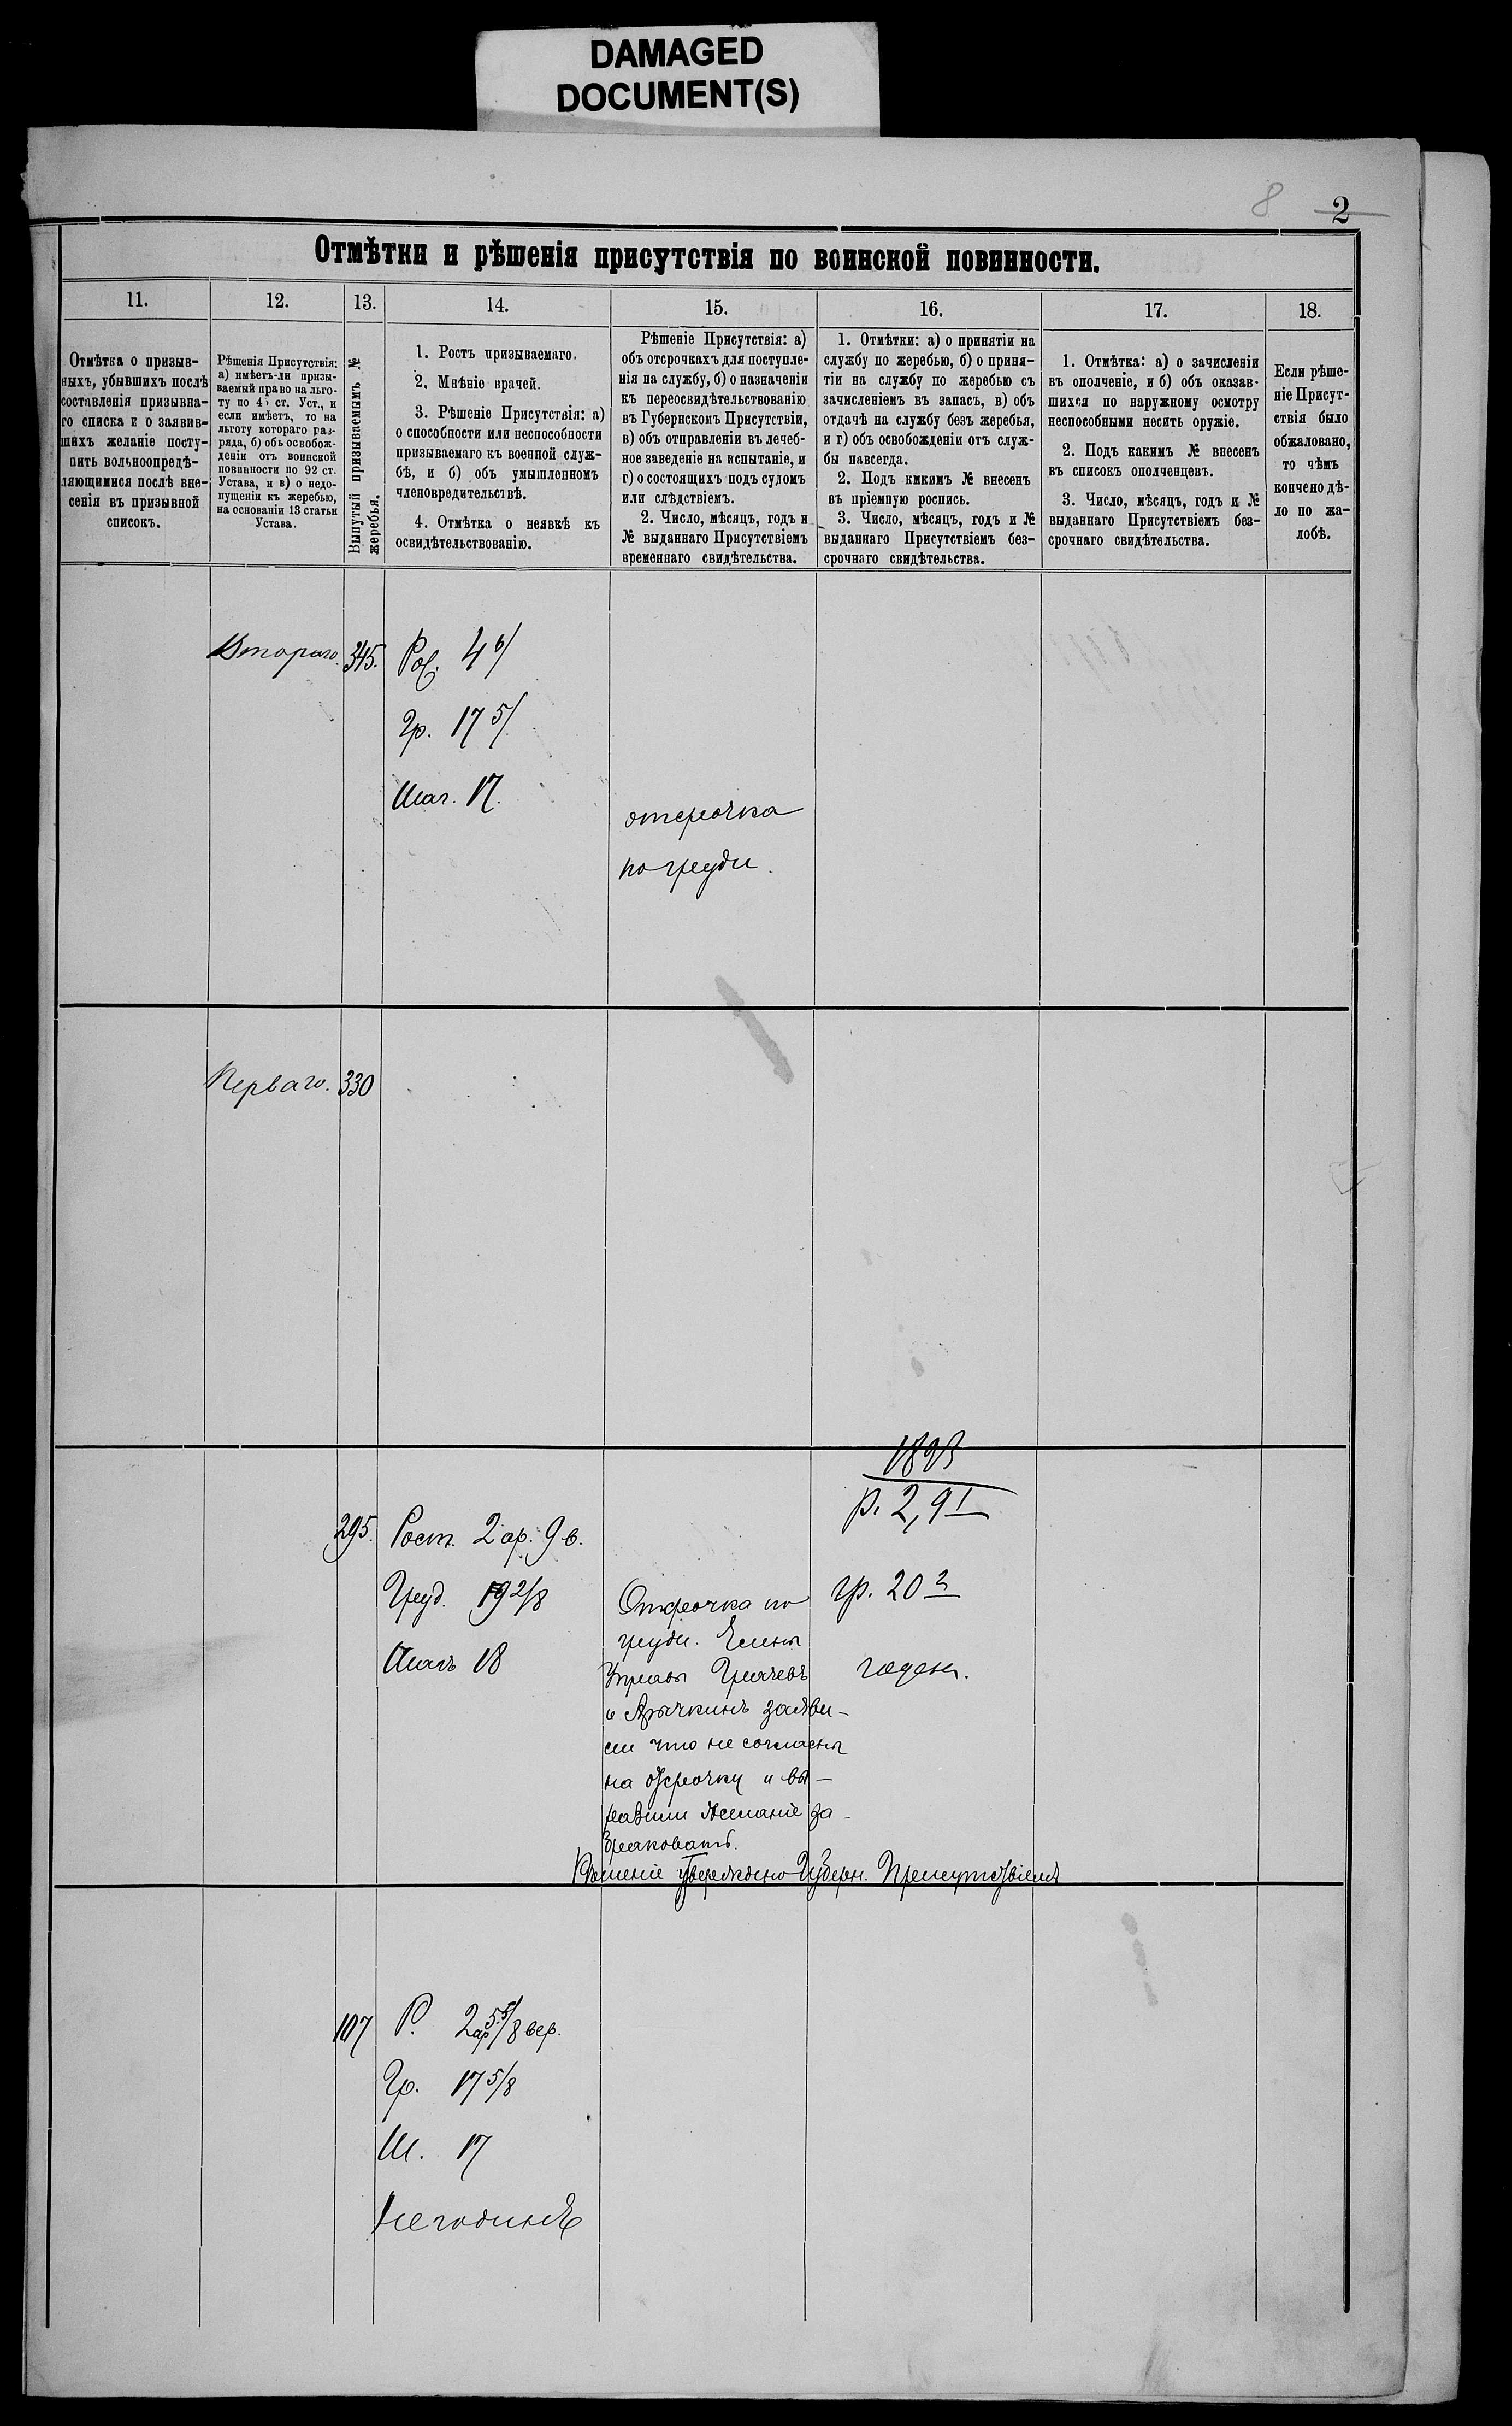 DAMAGED
DOCUMENT(S)
8 2
Отмѣтки и рѣшенія присутствія по воинской повинности.
11.
12.
13.
14.
15.
16.
17.
18.
Отмѣтка о призыв-
ныхъ, убывшихъ послѣ
составленія призывна-
го списка и о заявив-
шихъ желаніе посту-
пить вольноопредѣ-
ляющимися послѣ вне-
сенія въ призывной
списокъ.
Рѣшенія Присутствія:
а) имѣетъ-ли призы-
ваемый право на льго-
ту по 45 ст. Уст., и
если имѣетъ, то на
льготу котораго раз-
ряда, б) объ освобож-
деніи отъ воинской
повинности по 92 ст.
Устава, и в) о недо-
пущеніи къ жеребью,
на основаніи 13 статьи
Устава.
Вынутый призываемымъ №
жеребья.
1. Ростъ призываемаго.
2. Мнѣніе врачей.
3. Рѣшеніе Присутствія: а)
о способности или неспособности
призываемаго къ военной служ-
бѣ, и б) объ умышленномъ
членовредительствѣ.
4. Отмѣтка о неявкѣ къ
освидѣтельствованію.
Рѣшеніе Присутствія: а)
объ отсрочкахъ для поступле-
нія на службу, б) о назначеніи
къ переосвидѣтельствованію
въ Губернскомъ Присутствіи,
в) объ отправленіи въ лечеб-
ное заведеніе на испытаніе, и
г) о состоящихъ подъ судомъ
или слѣдствіемъ.
2. Число, мѣсяцъ, годъ и
№ выданнаго Присутствіемъ
временнаго свидѣтельства.
1. Отмѣтки: а) о принятіи на
службу по жеребью, б) о приня-
тіи на службу по жеребью съ
зачисленіемъ въ запасъ, в) объ
отдачѣ на службу безъ жеребья,
и г) объ освобожденіи отъ служ-
бы навсегда.
2. Подъ кмкимъ № внесенъ
въ пріемную роспись.
3. Число, мѣсяцъ, годъ и №
выданнаго Присутствіемъ без-
срочнаго свидѣтельства.
1. Отмѣтка: а) о зачисленіи
въ ополченіе, и б) объ оказав-
шихся по наружному осмотру
неспособными несить оружіе.
2. Подъ какимъ № внесенъ
въ списокъ ополченцевъ.
3. Число, мѣсяцъ, годъ и №
выданнаго Присутствіемъ без-
срочнаго свидѣтельства.
Если рѣше-
ніе Присут-
ствія было
обжаловано,
то чѣмъ
кончено дѣ-
ло по жа-
лобѣ.
Втораго. 345.
Гр. 17 5/
Шаг. 17.
отсрочка
по груди.
Перваго. 330
295. Рост. 2 ар. 9 в.
Груд. 19 2/8
Шагъ 18
Отсрочка по
груди. Члены
Управы
заяви-
ли что не согласны
на отсрочку и вы-
разили желаніе за
браковать.
Рѣшеніе утверждено Губерн. Присутствіемъ
1893
р. 2,9
гр. 20
годенъ.
107 Р. 2 ар 5 5/8 вер.
Гр. 17 5/8
Ш. 17